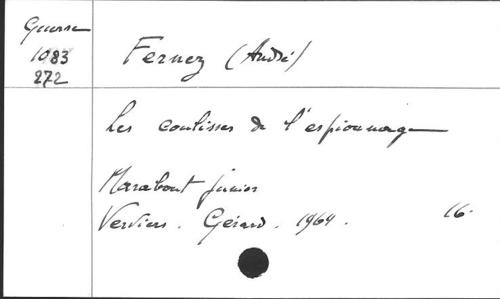 Guerre
1083
272
Fernez (André)
Les coulisses de l'espionnage
Marabout junior
Verviers. Gérard. 1964. 16.